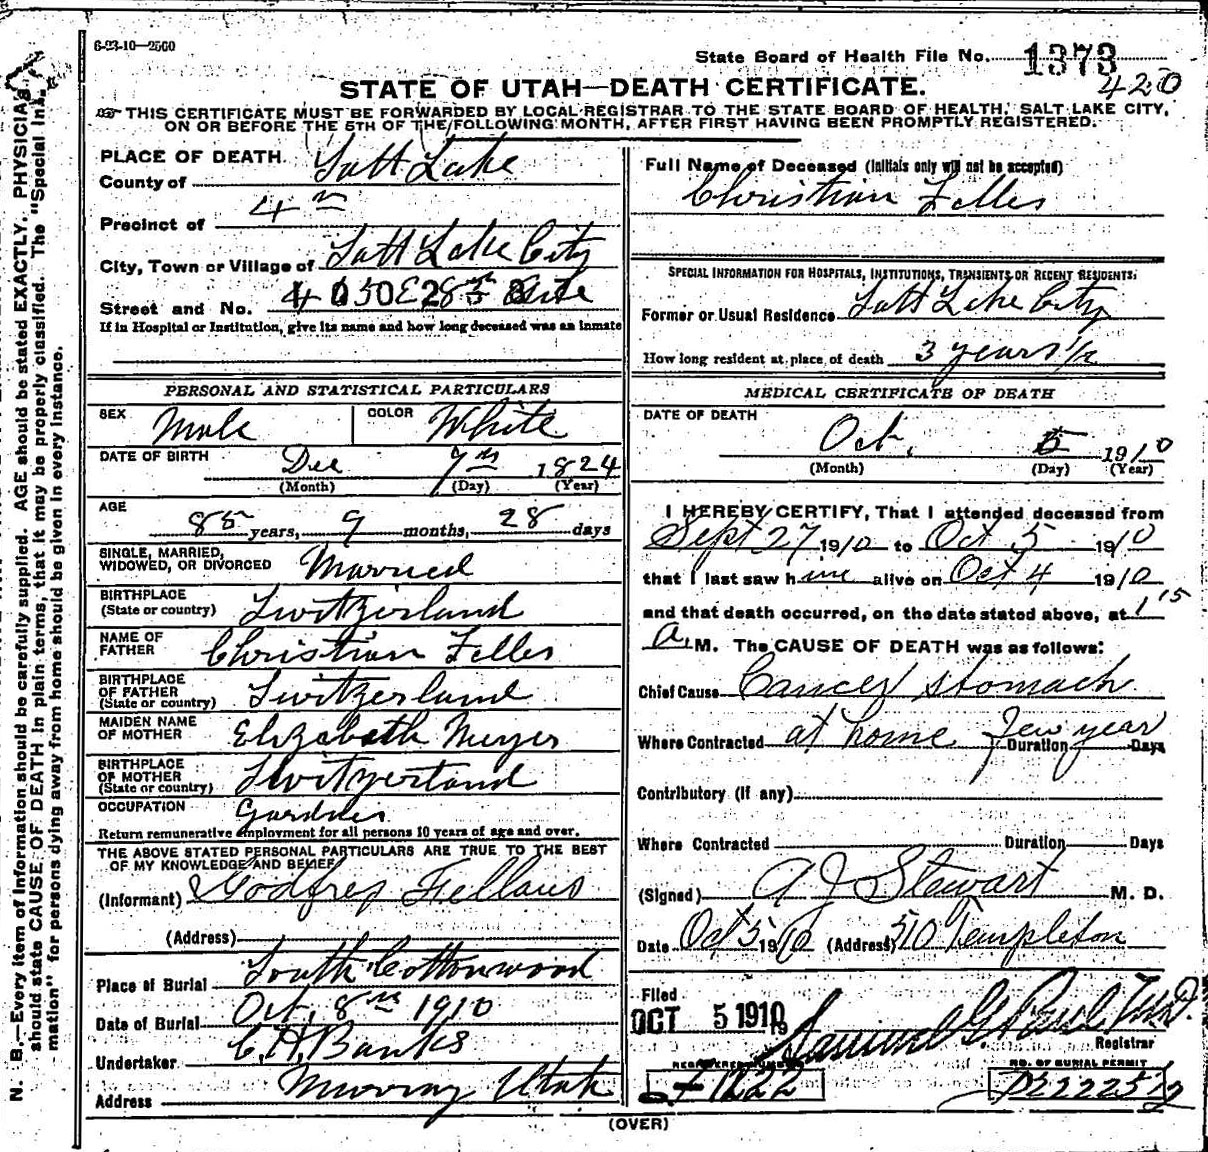 6-23-10—2500
State Board of Health File No. 1373
420
STATE OF UTAH—DEATH CERTIFICATE.
THIS CERTIFICATE MUST BE FORWARDED BY LOCAL REGISTRAR TO THE STATE BOARD OF HEALTH, SALT LAKE CITY,
ON OR BEFORE THE 5TH OF THE FOLLOWING MONTH, AFTER FIRST HAVING BEEN PROMPTLY REGISTERED.
PLACE OF DEATH.
County of Salt Lake
Precinct of 4th
City, Town or Village of Salt Lake City
Street and No.
If in Hospital or Institution, give its name and how long deceased was an inmate
PERSONAL AND STATISTICAL PARTICULARS
SEX Male COLOR White
DATE OF BIRTH Dec 7th 1824
(Month) (Day) (Year)
AGE 85 years, 9 months, 28 days
SINGLE, MARRIED,
WIDOWED, OR DIVORCED Married
BIRTHPLACE
(State or country) Switzerland
NAME OF
FATHER Christian Feller
BIRTHPLACE
OF FATHER
(State or country) Switzerland
MAIDEN NAME
OF MOTHER Elizabeth Meyer
BIRTHPLACE
OF MOTHER
(State or country) Switzerland
OCCUPATION Gardner
Return remunerative employment for all persons 10 years of age and over.
THE ABOVE STATED PERSONAL PARTICULARS ARE TRUE TO THE BEST
OF MY KNOWLEDGE AND BELIEF
(Informant) Godfrey
(Address)
Place of Burial South Cottonwood
Date of Burial Oct. 8th 1910
Undertaker C. H. Banks
Address Murray Utah
Full Name of Deceased (Initials only will not be accepted)
Christian Feller
SPECIAL INFORMATION FOR HOSPITALS, INSTITUTIONS, TRANSIENTS OR RECENT RESIDENTS.
Former or Usual Residence Salt Lake City
How long resident at place of death 3 years 1/2
MEDICAL CERTIFICATE OF DEATH
DATE OF DEATH
Oct. 5 1910
(Month) (Day) (Year)
I HEREBY CERTIFY, That I attended deceased from
Sept 27 1910 to Oct 5 1910
that I last saw him alive on Oct 4 1910
and that death occurred, on the date stated above, at 1 15
a. M. The CAUSE OF DEATH was as follows:
Chief Cause Cancer stomach
Where Contracted at home Duration few year Days
Contributory (if any)
Where Contracted Duration Days
(Signed) A J Stewart M. D.
Date Oct 5 1910 (Address) 510 Templeton
Filed
OCT 5 1910 Samuel G. Paul M.D.
Registrar
REGISTERED NUMBER
1222
NO. OF BURIAL PERMIT
(OVER)
N. B.—Every item of information should be carefully supplied. AGE should be stated EXACTLY. PHYSICIANS
should state CAUSE OF DEATH in plain terms, that it may be properly classified. The "Special Infor-
mation" for persons dying away from home should be given in every instance.